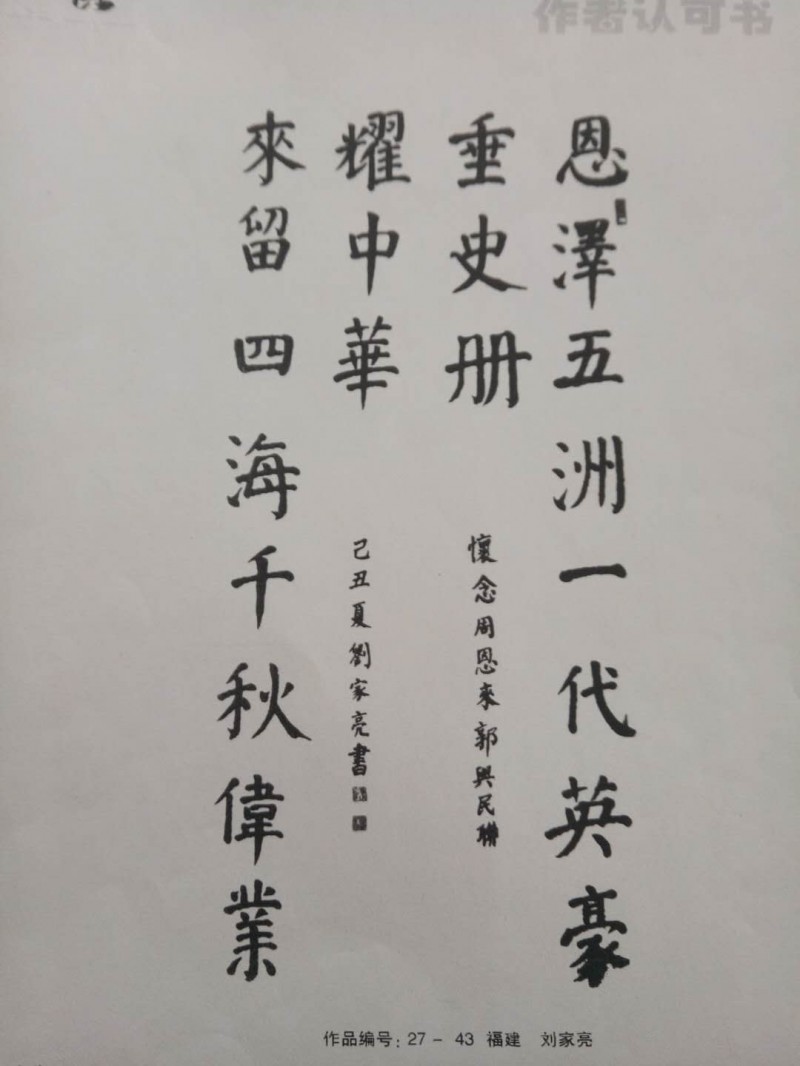 作者认可书
恩澤五洲一代英豪
垂史册
懷念周恩來郭興民聯
耀中華
己丑夏劉家亮書
來留四海千秋偉業
作品编号：27－43 福建 刘家亮